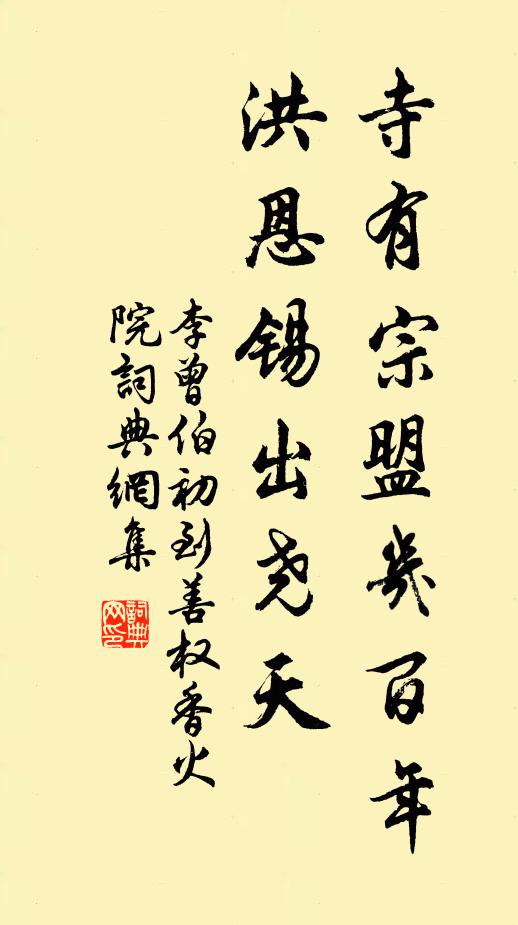 寺有宗盟几百年
洪恩锡出尧天
李曾伯初到善权香火
院詞典網集
詞典网印